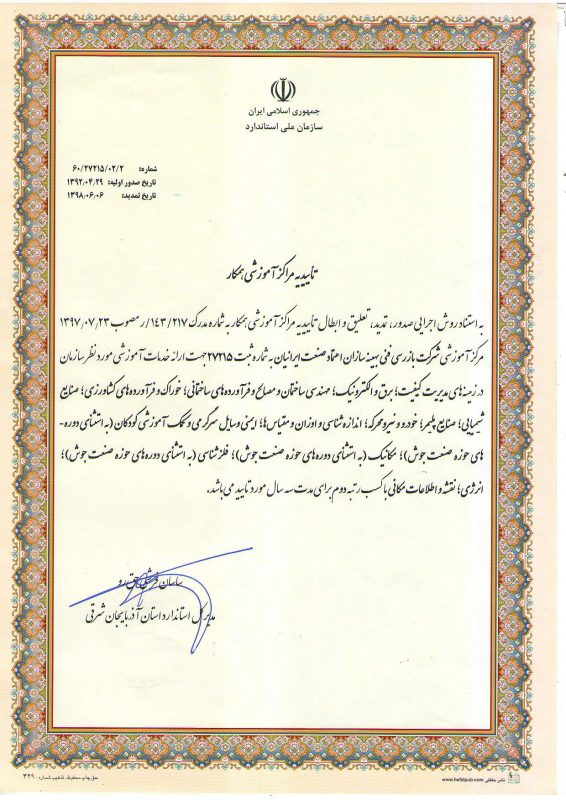 جمهوری اسلامی ایران
سازمان ملی استاندارد
شماره: ۶۰/۲۷۲۱۵/۰۲/۲
تاریخ صدور اولیه: ۱۳۹۲٫۰۴٫۲۹
تاریخ تمدید: ۱۳۹۸٫۰۶٫۰۶
تاییدیه مراکز آموزشی همکار
به استناد روش اجرایی صدور، تمدید، تعلیق و ابطال تاییدیه مراکز آموزشی همکار به شماره مدرک ۱۴۳/۲۱۷/ر مصوب ۱۳۹۷٫۰۷٫۲۳
مرکز آموزشی شرکت بازرسی فنی بهینه سازان اعتماد صنعت ایرانیان به شماره ثبت ۲۷۲۱۵ جهت ارائه خدمات آموزشی مورد نظر سازمان
در زمینه های مدیریت کیفیت؛ برق و الکترونیک؛ مهندسی ساختمان و مصالح و فرآورده های ساختمانی؛ خوراک و فرآورده های کشاورزی؛ صنایع
شیمیایی؛ صنایع پلیمر؛ خودرو و نیرو محرکه؛ اندازه شناسی و اوزان و مقیاس ها؛ ایمنی وسایل سرگرمی و کمک آموزشی کودکان (به استثنای دوره-
های حوزه صنعت جوش)؛ مکانیک (به استثنای دوره های حوزه صنعت جوش)؛ فلزشناسی (به استثنای دوره های حوزه صنعت جوش)؛
انرژی؛ نقشه و اطلاعات مکانی با کسب رتبه دوم برای مدت سه سال مورد تایید می باشد.
ساسان
مدیر کل استاندارد استان آذربایجان شرقی
حق چاپ محفوظ. تذهیب شماره: ۳۲۹
نشر حافظی www.hafzipub.com